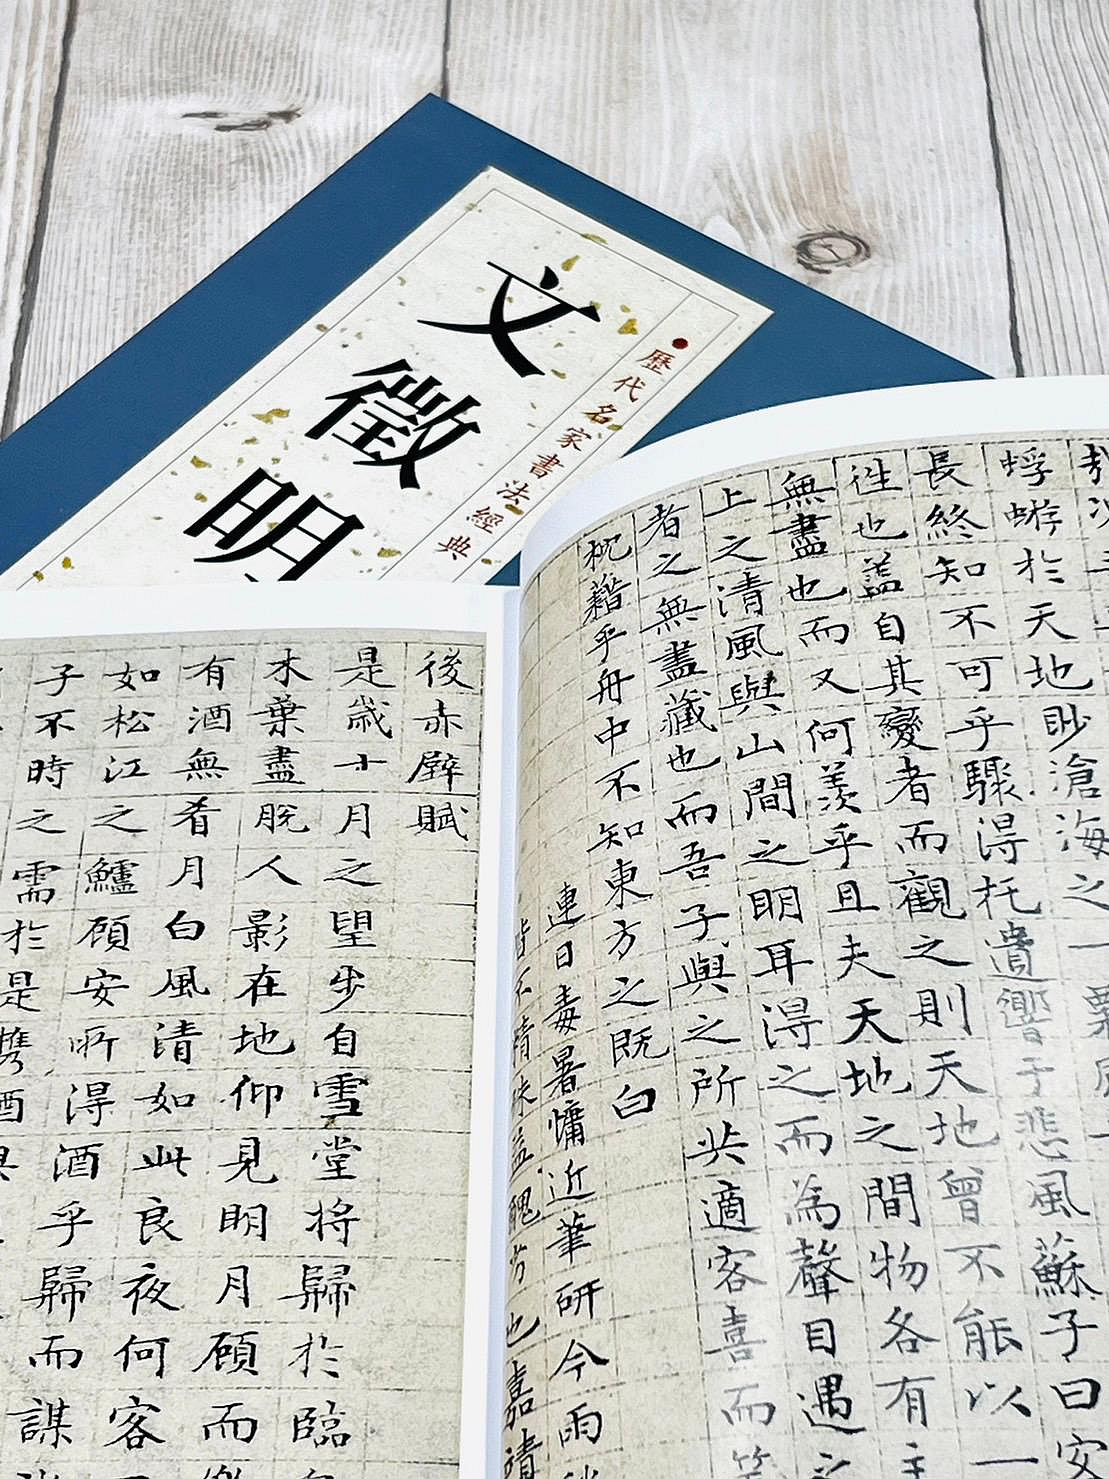 歷代名家書法經典
文徵明
蜉蝣於天地眇滄海之一粟
長終知不可乎驟得托遺響于悲風蘇子曰安
徃也盖自其變者而觀之則天地曾不能以一
無盡也而又何羨乎且夫天地之間物各有主
上之清風與山間之明耳得之而為聲目遇之
者之無盡藏也而吾子與之所共適客喜而笑
枕藉乎舟中不知東方之既白
連日毒暑慵近筆研今雨
皆不精殊益醜劣也嘉靖
後赤壁賦
是歲十月之望步自雪堂将歸於臨
木葉盡脫人影在地仰見明月顧而樂
有酒無肴月白風清如此良夜何客
如松江之鱸顧安所得酒乎歸而謀
子不時之需於是携酒與